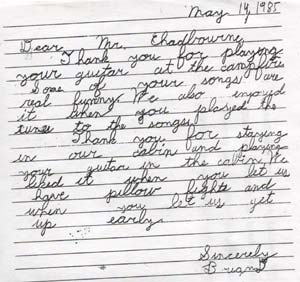 May 14, 1985
Dear Mr. Chadbourne,
Thank you for playing
your guitar at the campfire.
Some of your songs are
real funny. We also enjoyed
it when you played the
tunes to the songs.
Thank you for staying
in our cabin and playing
your guitar in the cabin. We
liked it when you let us
have pillow fights and
when you let us get
up early.
Sincerely
Brian